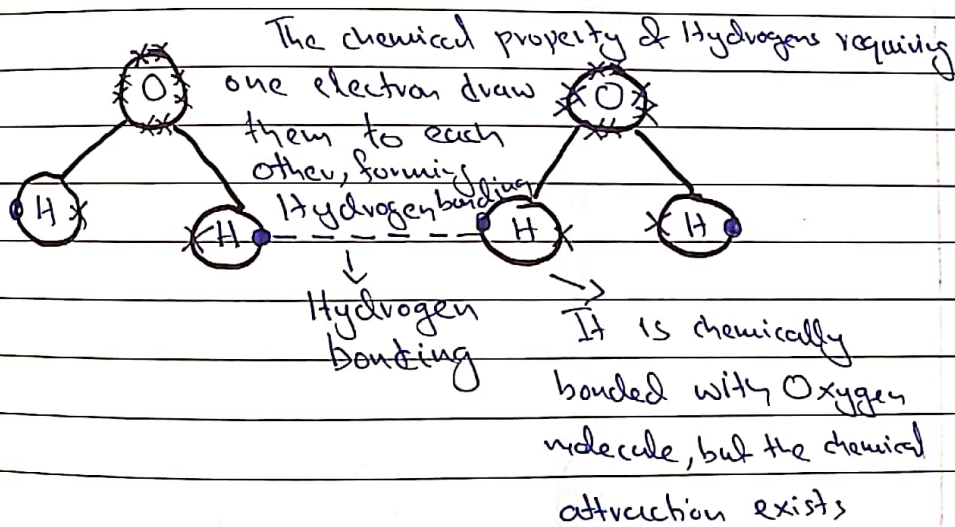 The chemical property of Hydrogens requiring
one electron draw
them to each
other, forming
Hydrogen bonding
O
O
H
H
H
H
Hydrogen
bonding
It is chemically
bonded with Oxygen
molecule, but the chemical
attraction exists